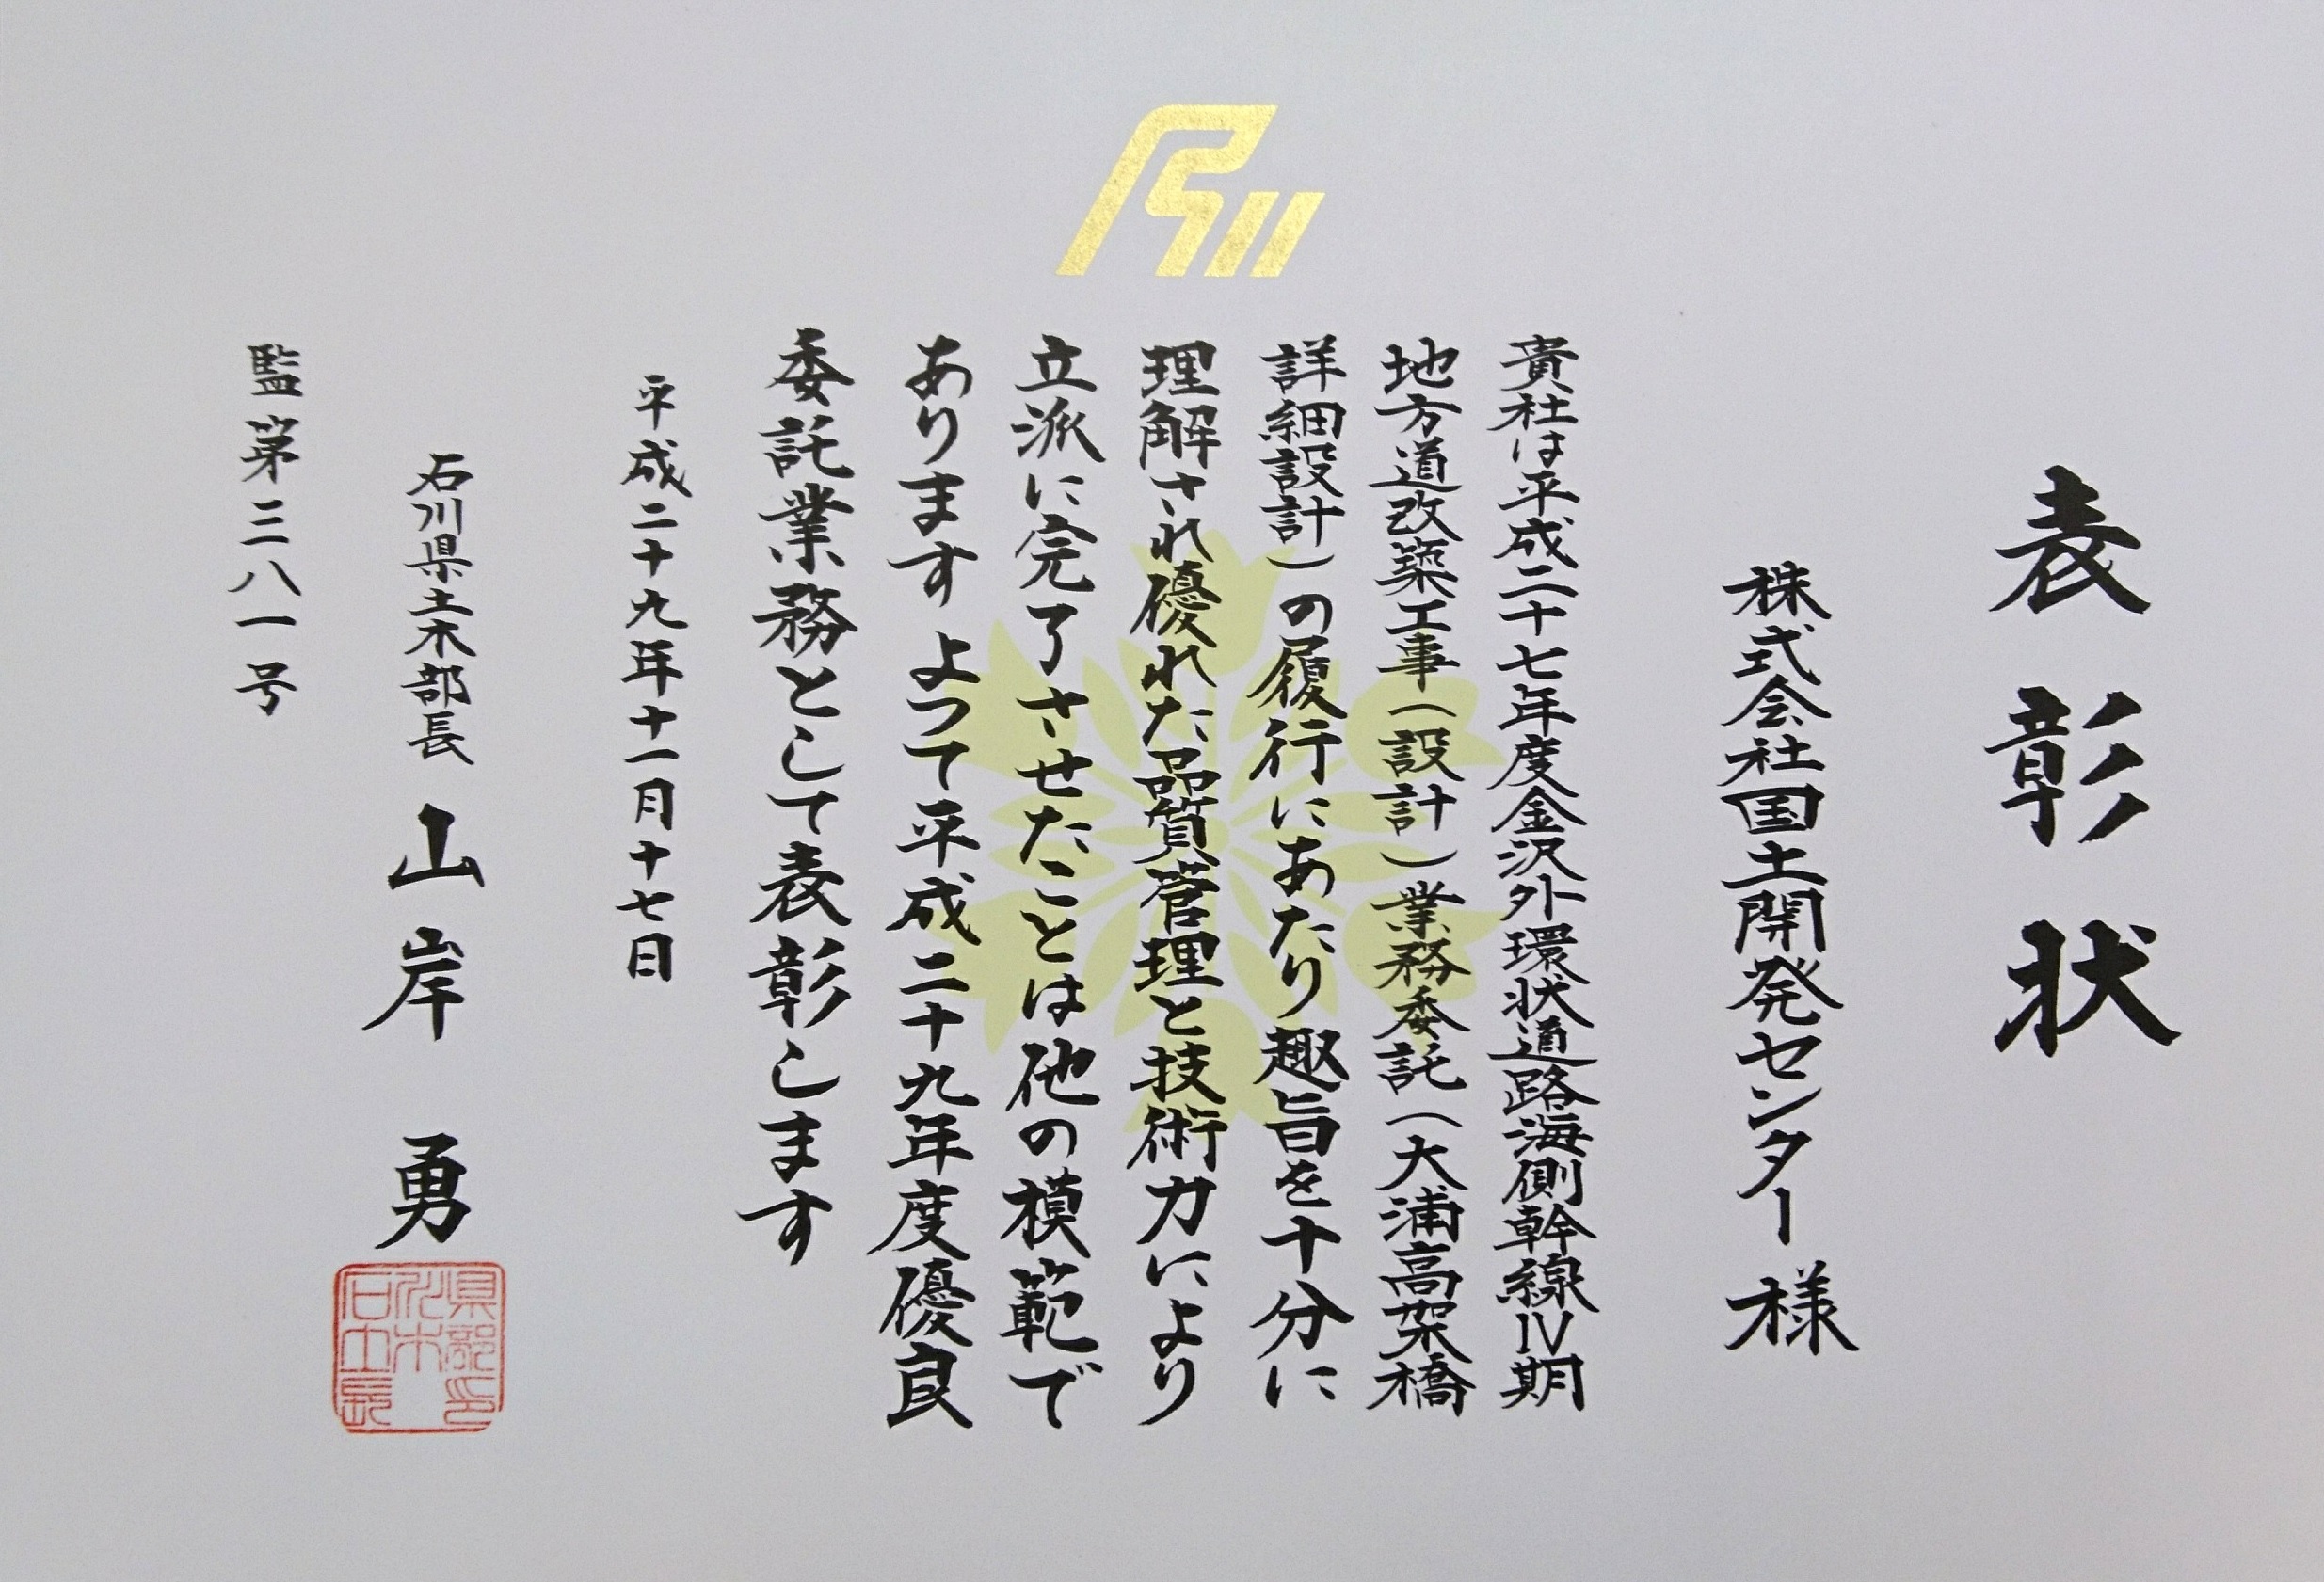 表彰状
株式会社国土開発センター様
貴社は平成二十七年度金沢外環状道路海側幹線Ⅳ期
地方道改築工事(設計)業務委託(大浦高架橋
詳細設計)の履行にあたり趣旨を十分に
理解され優れた品質管理と技術力により
立派に完了させたことは他の模範で
あります よって平成二十九年度優良
委託業務として表彰します
平成二十九年十一月十七日
石川県土木部長 山岸 勇
監第三八一号
石川県土木部長印